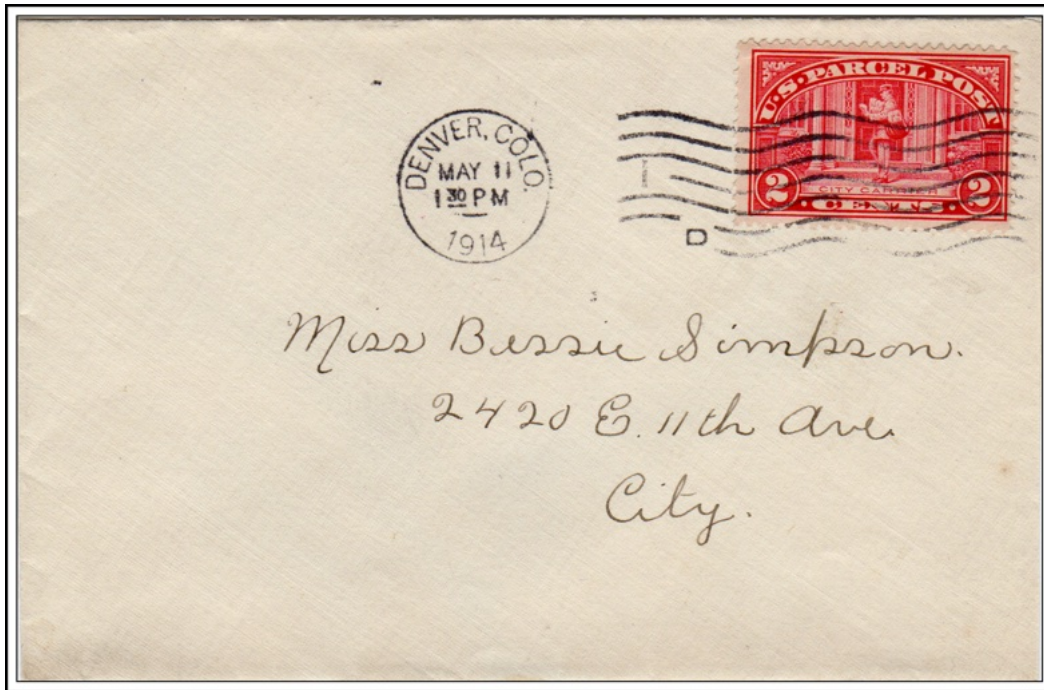 DENVER, COLO.
MAY 11
1 30 PM
1914
D
U.S. PARCEL POST
2 CITY CARRIER 2
CENTS
Miss Bessie Simpson.
2420 E. 11th Ave.
City.